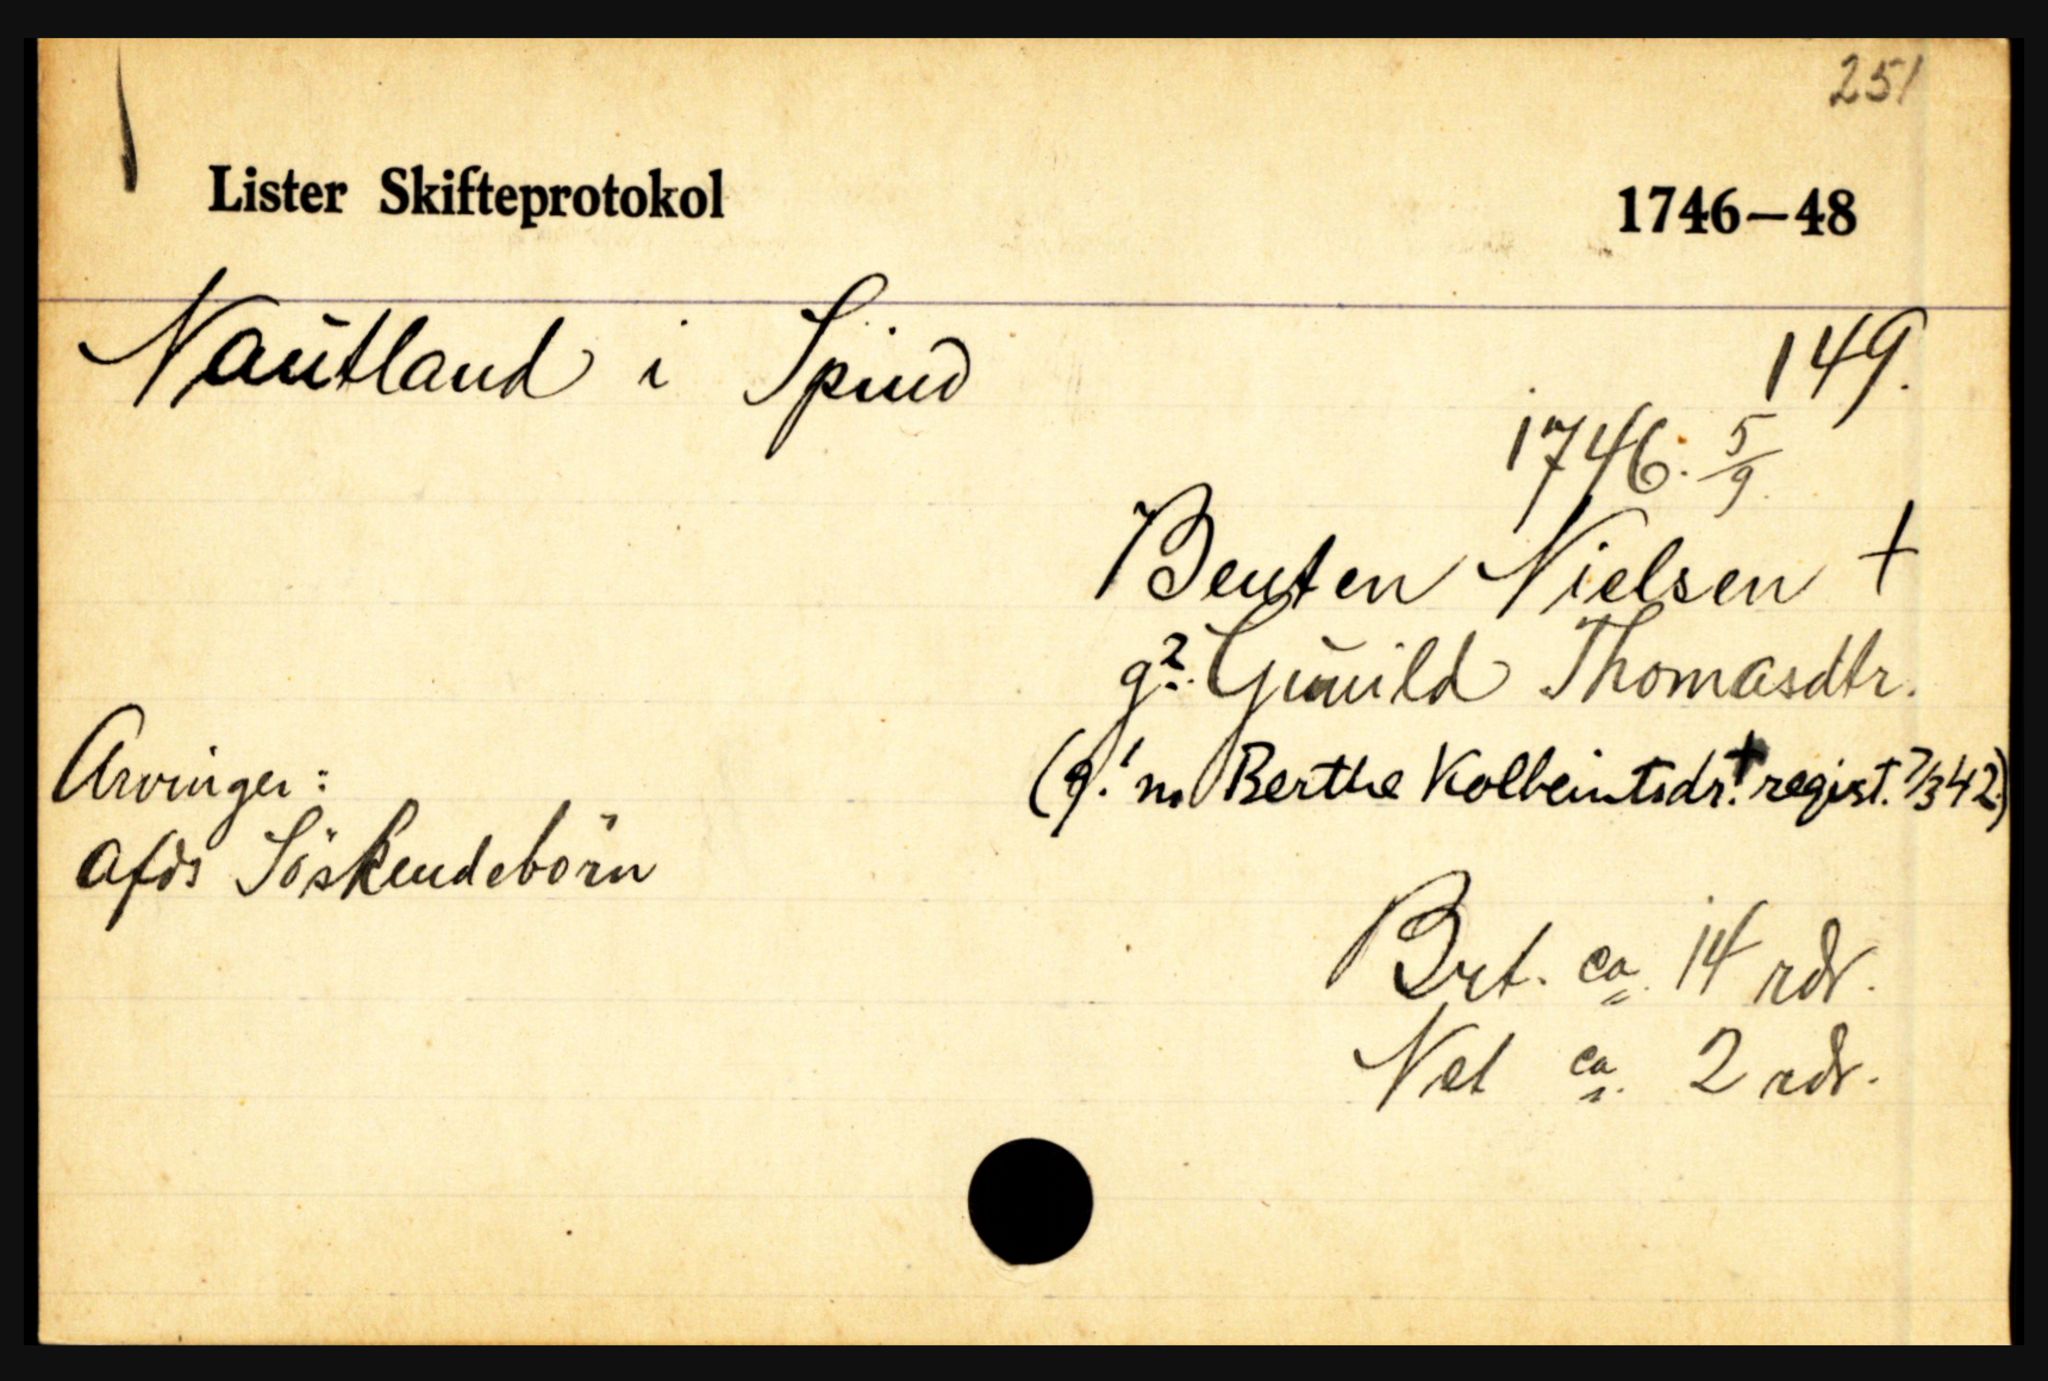 251
Lister Skifteprotokol 1746—48
Nautland i Spind 149.
1746. 5/9.
Benten Nielsen †
g². Gunild Thomasdtr.
(g.¹ m Berthe Kolbeintsdr.† regist. 7/3 42.)
Arvinger:
afds Söskendebörn
Brt. ca. 14 rdr.
Net ca. 2 rdr.